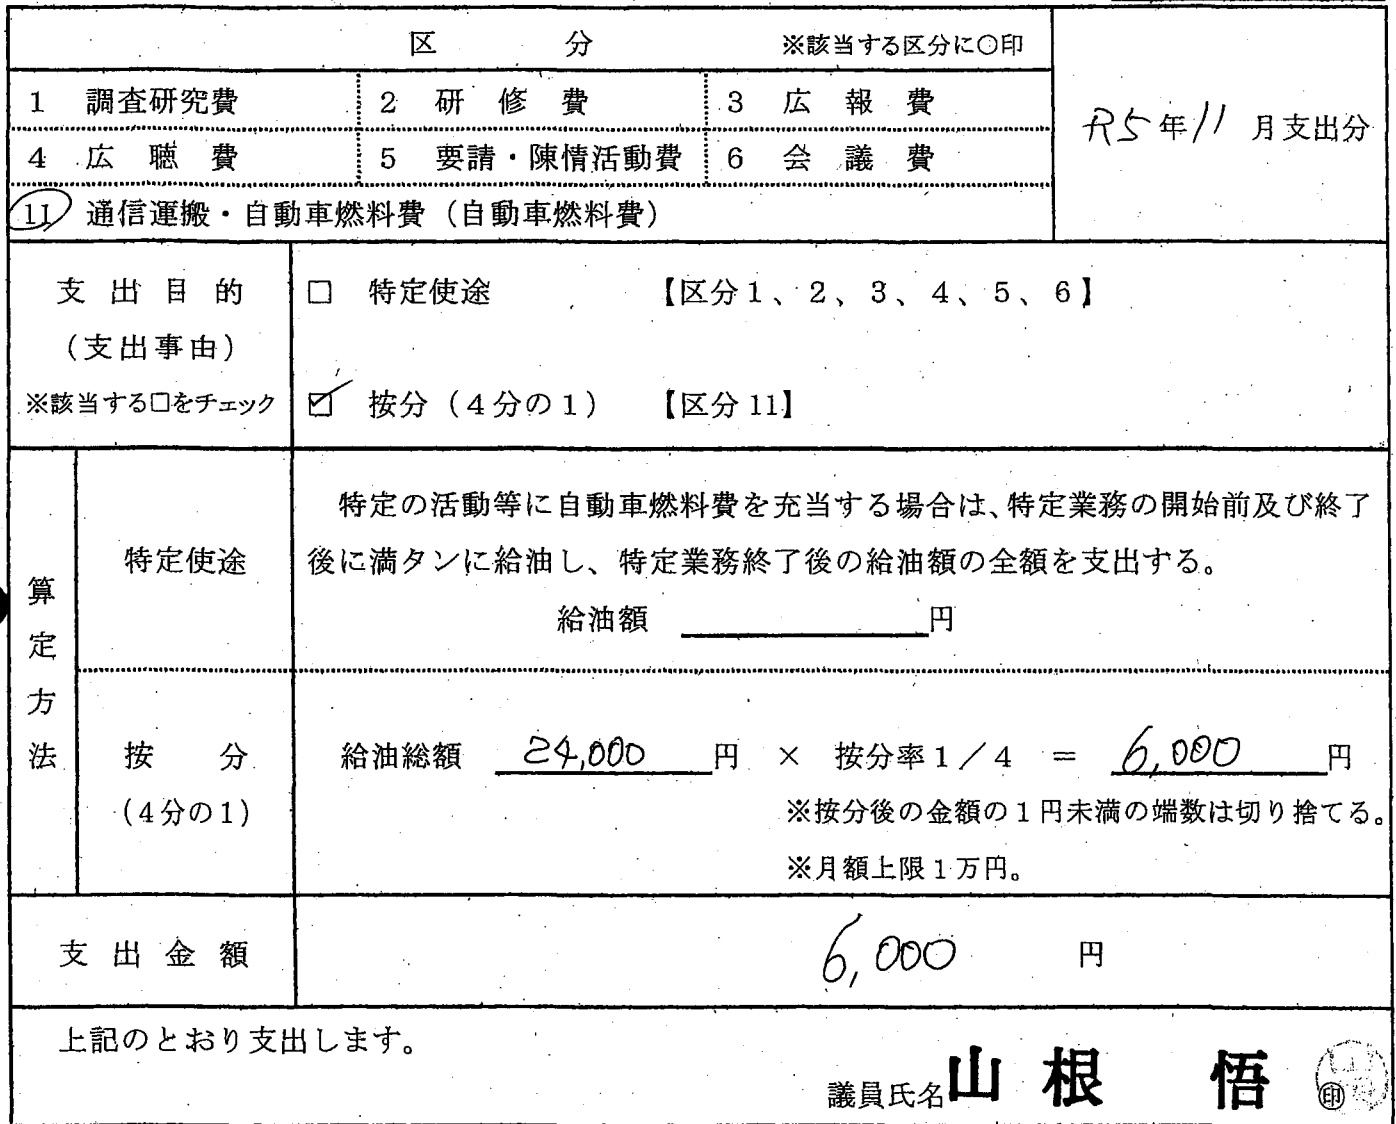 区 分 ※該当する区分に〇印
1 調査研究費 2 研修費 3 広報費
R5年11月支出分
4 広聴費 5 要請・陳情活動費 6 会議費
11 通信運搬・自動車燃料費（自動車燃料費）
支出目的
（支出事由）
※該当する□をチェック
□ 特定使途 【区分1、2、3、4、5、6】
☑ 按分（4分の1） 【区分11】
算定方法
特定使途
特定の活動等に自動車燃料費を充当する場合は、特定業務の開始前及び終了
後に満タンに給油し、特定業務終了後の給油額の全額を支出する。
給油額 円
按分
（4分の1）
給油総額 24,000 円 × 按分率1／4 ＝ 6,000 円
※按分後の金額の1円未満の端数は切り捨てる。
※月額上限1万円。
支出金額 6,000 円
上記のとおり支出します。
議員氏名 山根 悟 ㊞